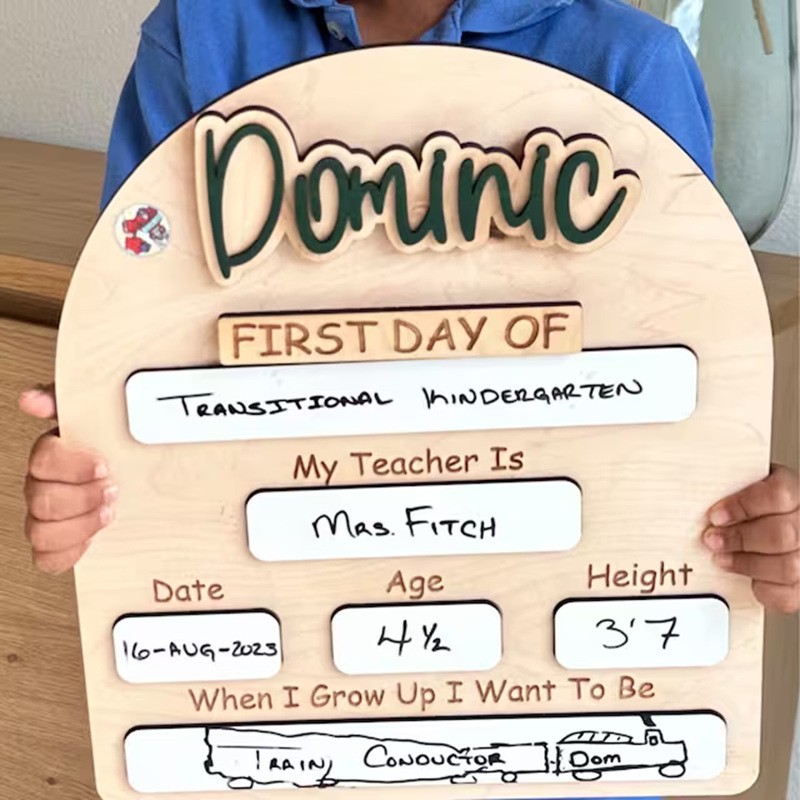 Dominic
FIRST DAY OF
TRANSITIONAL KINDERGARTEN
My Teacher Is
MRS. FITCH
Date Age Height
16-AUG-2023 4 ½ 3'7
When I Grow Up I Want To Be
TRAIN CONDUCTOR Dom